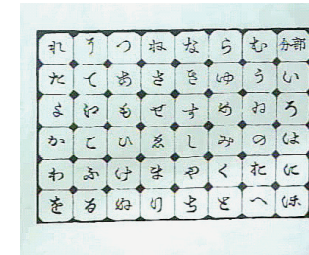 れ そ つ ね な ら む 分部
た て あ さ き ゆ う い
よ え も せ す め ゐ ろ
か こ ひ ゑ し み の は
わ ふ け ま や く お に
を る ぬ り ち と へ ほ